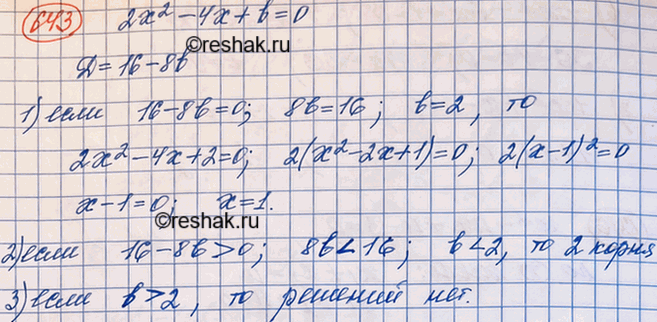 643 2x² - 4x + b = 0
©reshak.ru
D = 16 - 8b
1) если 16 - 8b = 0; 8b = 16; b = 2, то
2x² - 4x + 2 = 0; 2(x² - 2x + 1) = 0; 2(x - 1)² = 0
x - 1 = 0; x = 1.
©reshak.ru
2) если 16 - 8b > 0; 8b < 16; b < 2, то 2 корня
3) если b > 2, то решений нет.